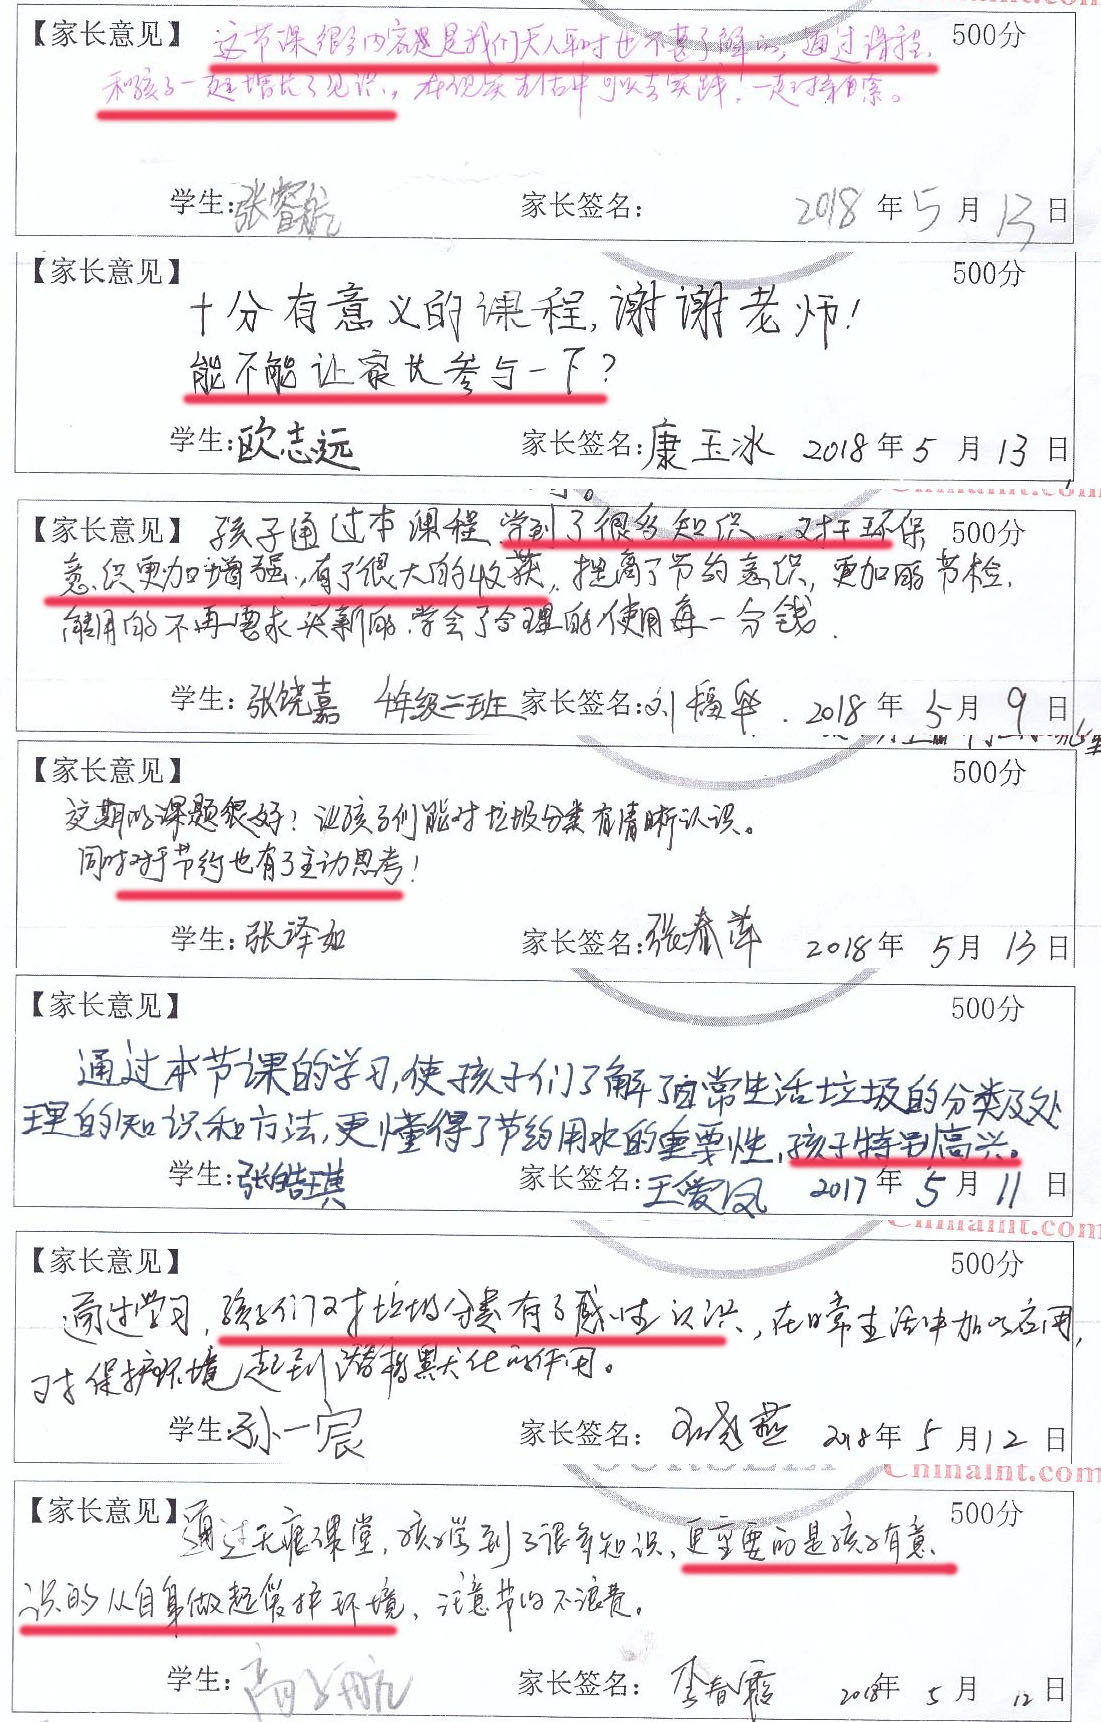 【家长意见】 500分
这节课很多内容是我们大人平时也不甚了解的,通过课程,
和孩子一起增长了见识。在现实生活中可以去实践!一起探索。
学生:张睿航 家长签名: 2018年5月13日
【家长意见】 500分
十分有意义的课程,谢谢老师!
能不能让家长参与一下?
学生:欧志远 家长签名:康玉冰 2018年5月13日
Chinaint.com
【家长意见】孩子通过本课程学到了很多知识,对于环保 500分
意识更加增强,有了很大的收获,提高了节约意识,更加的节检,
能用的不再要求买新的.学会了合理的使用每一分钱.
学生:张饶嘉 4年级二班 家长签名:刘福华. 2018年5月9日
【家长意见】 500分
这期的课题很好!让孩子们能对垃圾分类有清晰认识。
同时对于节约也有了主动思考!
学生:张译如 家长签名:张春萍 2018年5月13日
【家长意见】 500分
通过本节课的学习,使孩子们了解了日常生活垃圾的分类及处
理的知识和方法,更懂得了节约用水的重要性,孩子特别高兴。
学生:张皓琪 家长签名:王爱凤 2017年5月11日
Chinaint.com
【家长意见】 500分
通过学习,孩子们对垃圾分类有了感性认识,在日常生活中加以应用,
对保护环境起到潜移默化的作用。
学生:孙一宸 家长签名: 燕 2018年5月12日
Chinaint.com
【家长意见】 500分
通过无痕课堂,孩子学到了很多知识,更重要的是孩子有意
识的从自身做起保护环境,注意节约不浪费。
学生:高 航 家长签名:李春霞 2018年5月12日